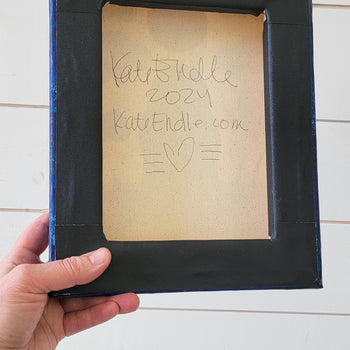 Kate Endle
2024
KateEndle.com